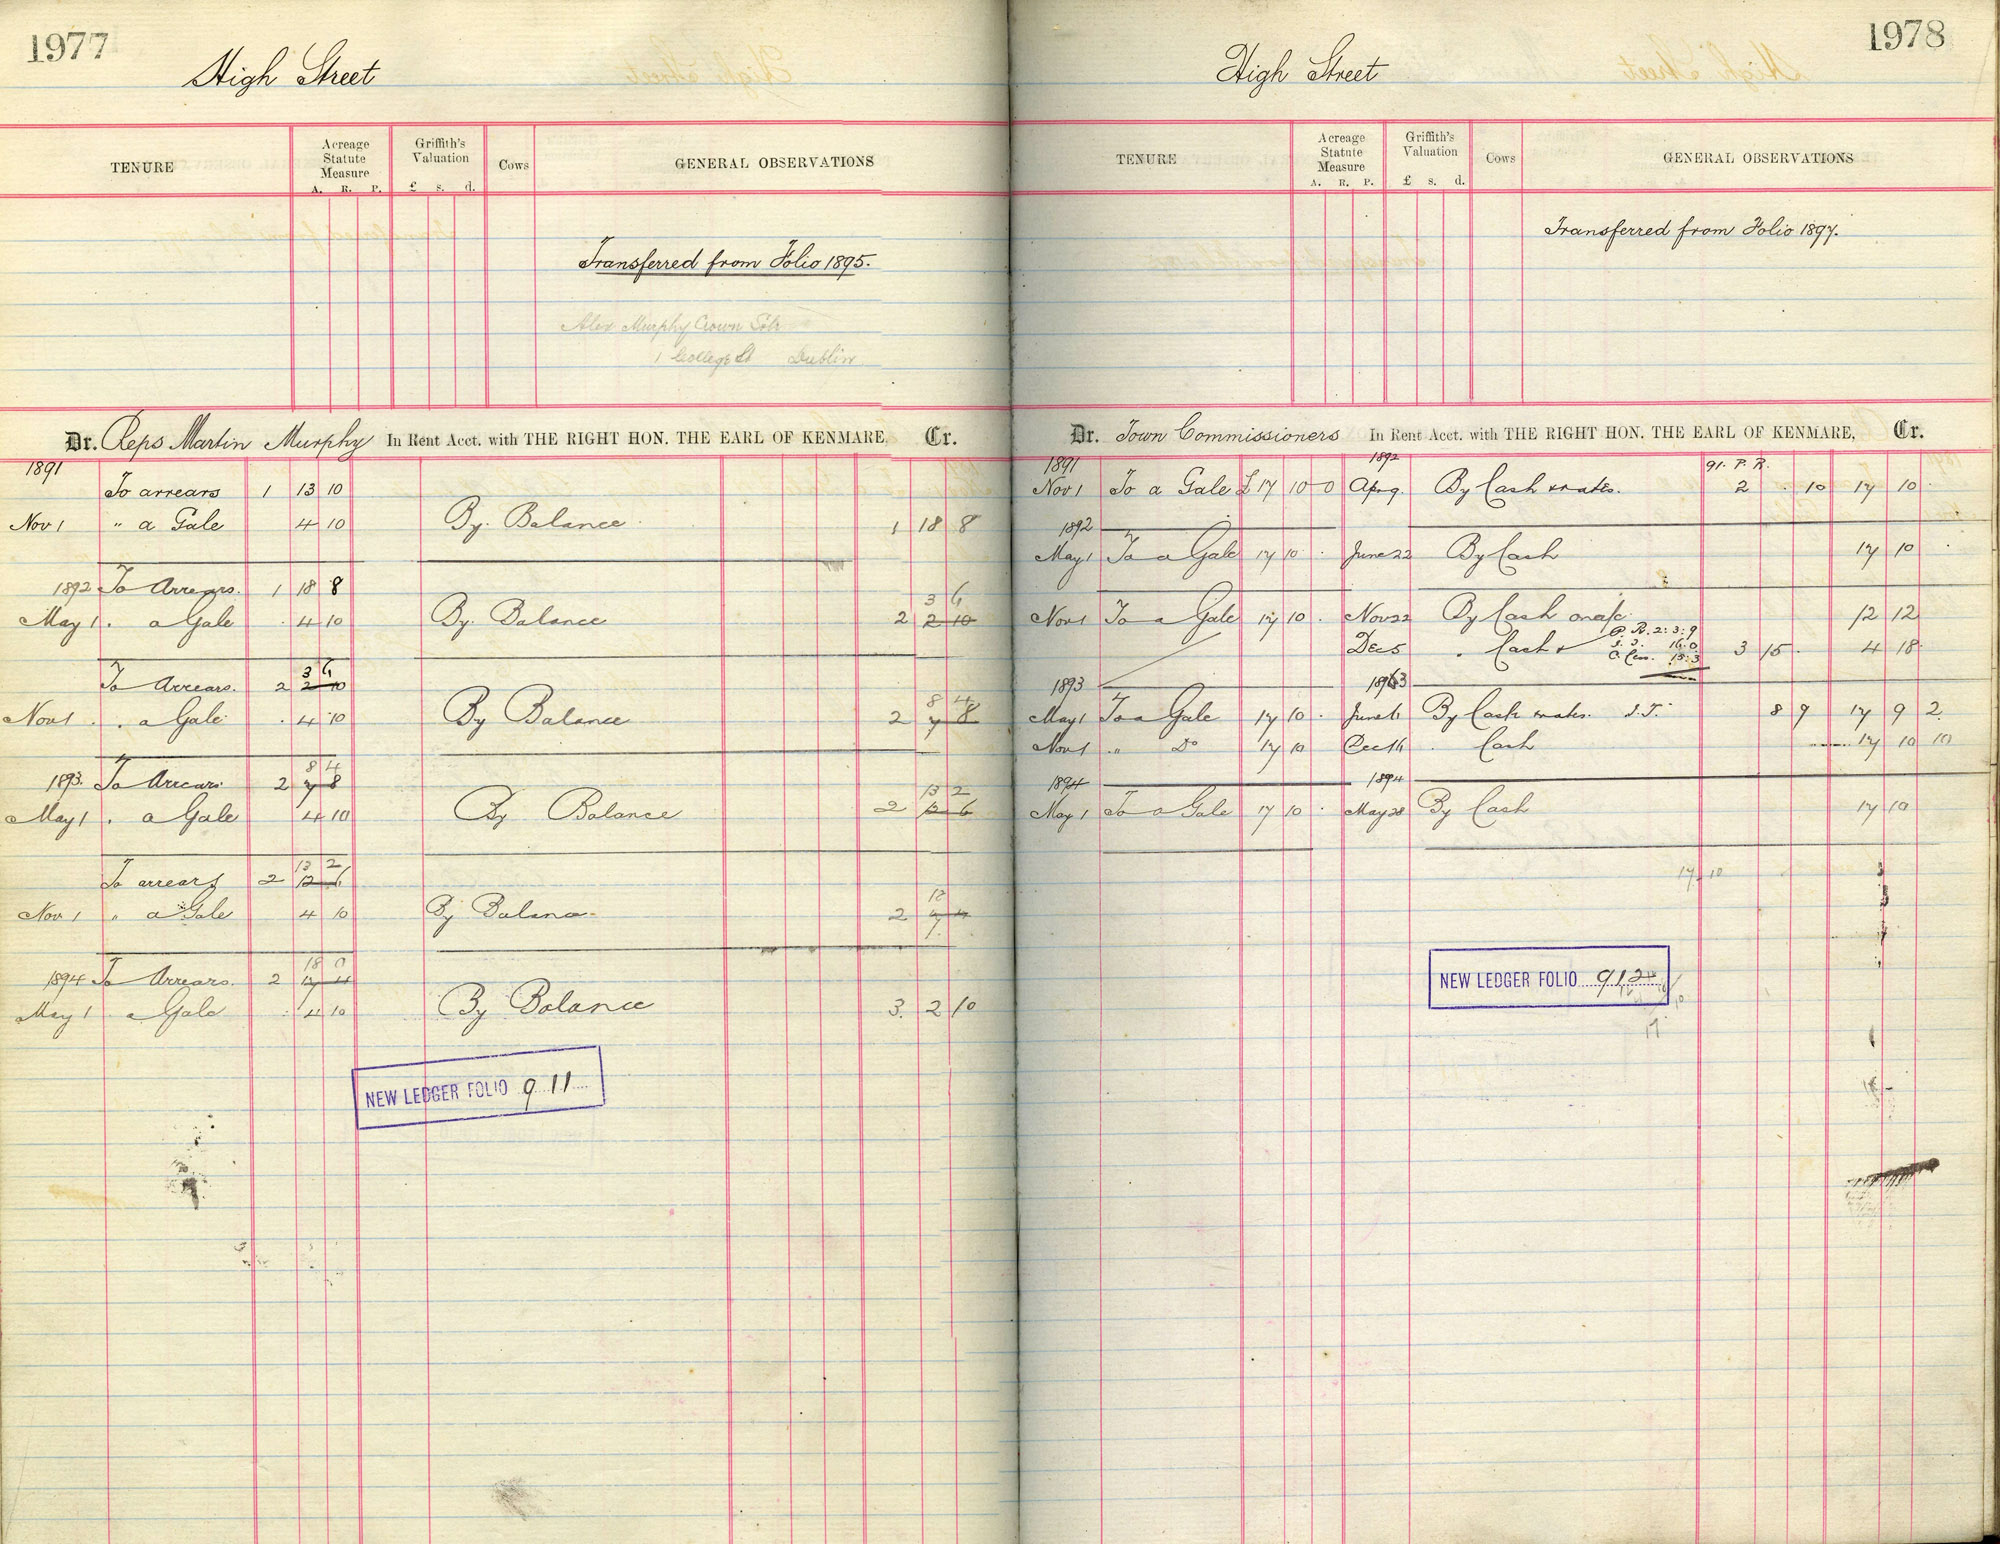 1977
High Street
TENURE
Acreage Statute Measure
A. R. P.
Griffith's Valuation
£ s. d.
Cows
GENERAL OBSERVATIONS
Transferred from Folio 1895.
Alex Murphy Crown Solr
1 College St Dublin
Dr. Reps Martin Murphy In Rent Acct. with THE RIGHT HON. THE EARL OF KENMARE, Cr.
1891
To arrears 1 13 10
Nov 1 " a Gale 4 10 By Balance 1 18 8
1892 To Arrears. 1 18 8
3 6
May 1 . a Gale . 4 10 By Balance 2 2 10
3 6
To Arrears. 2 2 10
8 4
Nov 1 . . a Gale . 4 10 By Balance 2 7 8
8 4
1893. To Arrears 2 7 8
13 2
May 1 . a Gale 4 10 By Balance 2 12 6
13 2
To arrears 2 12 6
18
Nov 1 " a Gale 4 10 By Balance 2 17 4
18 0
1894 To Arrears. 2 17 4
May 1 . a Gale . 4 10 By Balance 3. 2 10
NEW LEDGER FOLIO 911
1978
High Street
TENURE
Acreage Statute Measure
A. R. P.
Griffith's Valuation
£ s. d.
Cows
GENERAL OBSERVATIONS
Transferred from Folio 1897.
Dr. Town Commissioners In Rent Acct. with THE RIGHT HON. THE EARL OF KENMARE, Cr.
1891 1892 91. P. R.
Nov 1 To a Gale £ 17 10 0 Apr 9. By Cash & rates. 2 . 10 17 10 .
1892
May 1 To a Gale 17 10 . June 22 By Cash 17 10 .
Nov 1 To a Gale 17 10 . Nov 22 By Cash on a/c 12 12
P. R. 2: 3: 9
Dec 5 . Cash & 16. 0 3 15 . 4 18.
15: 3
1893 1893
May 1 To a Gale 17 10 . June 6 By Cash & rates. I. T. 8 9 17 9 2.
Nov 1 " Do 17 10 Dec 16 . Cash 17 10 10
1894 1894
May 1 To a Gale 17 10 . May 28 By Cash 17 10
17 10
NEW LEDGER FOLIO 912